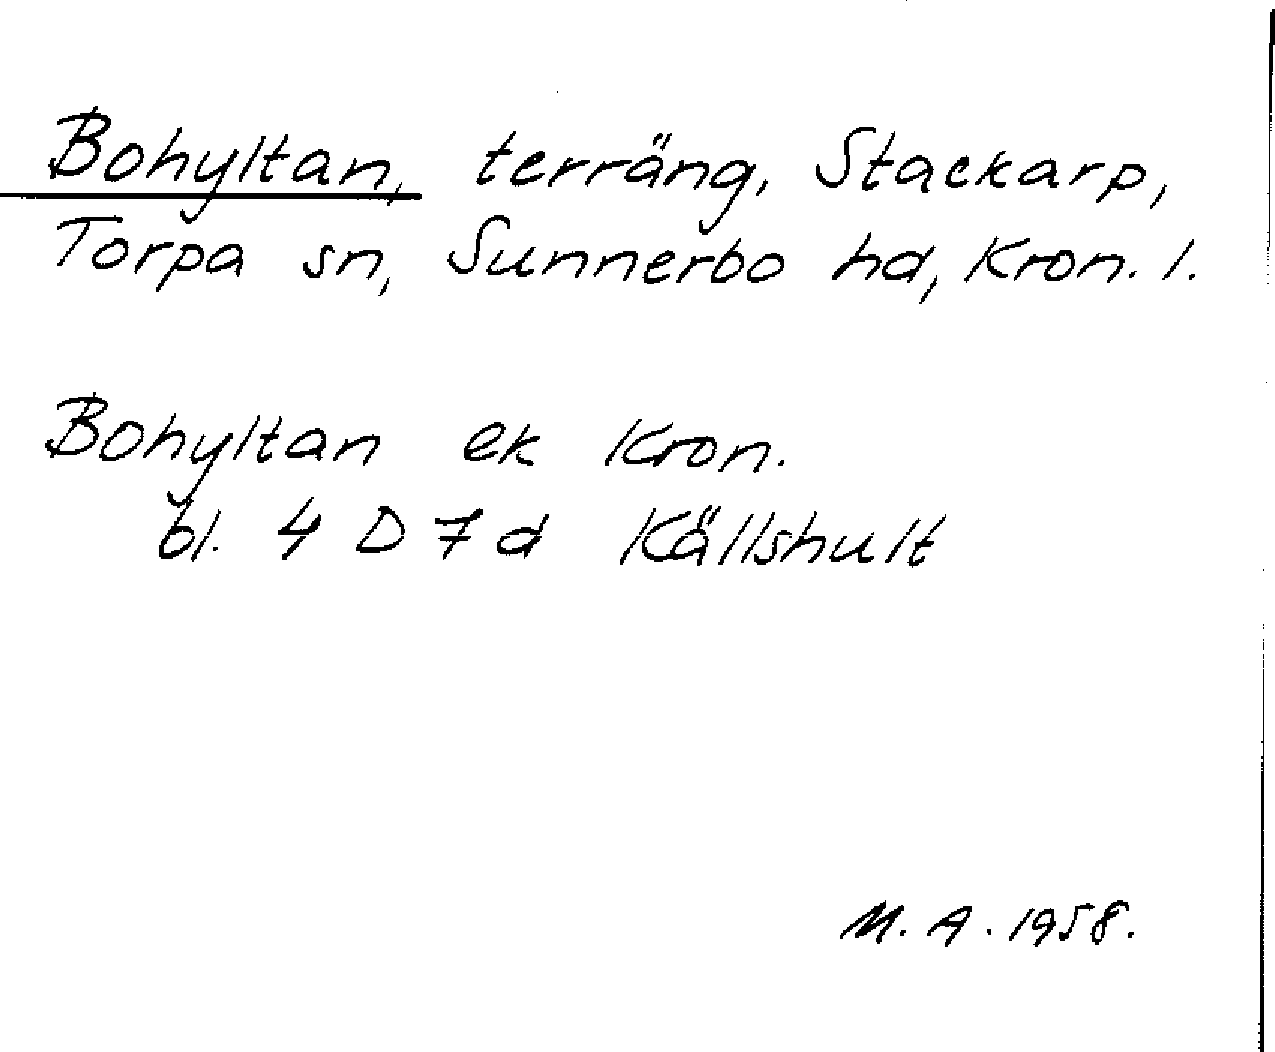 Bohyltan, terräng, Stackarp,
Torpa sn, Sunnerbo hd, Kron. l.
Bohyltan ek Kron.
bl. 4 D 7 d Källshult
M. A. 1958.